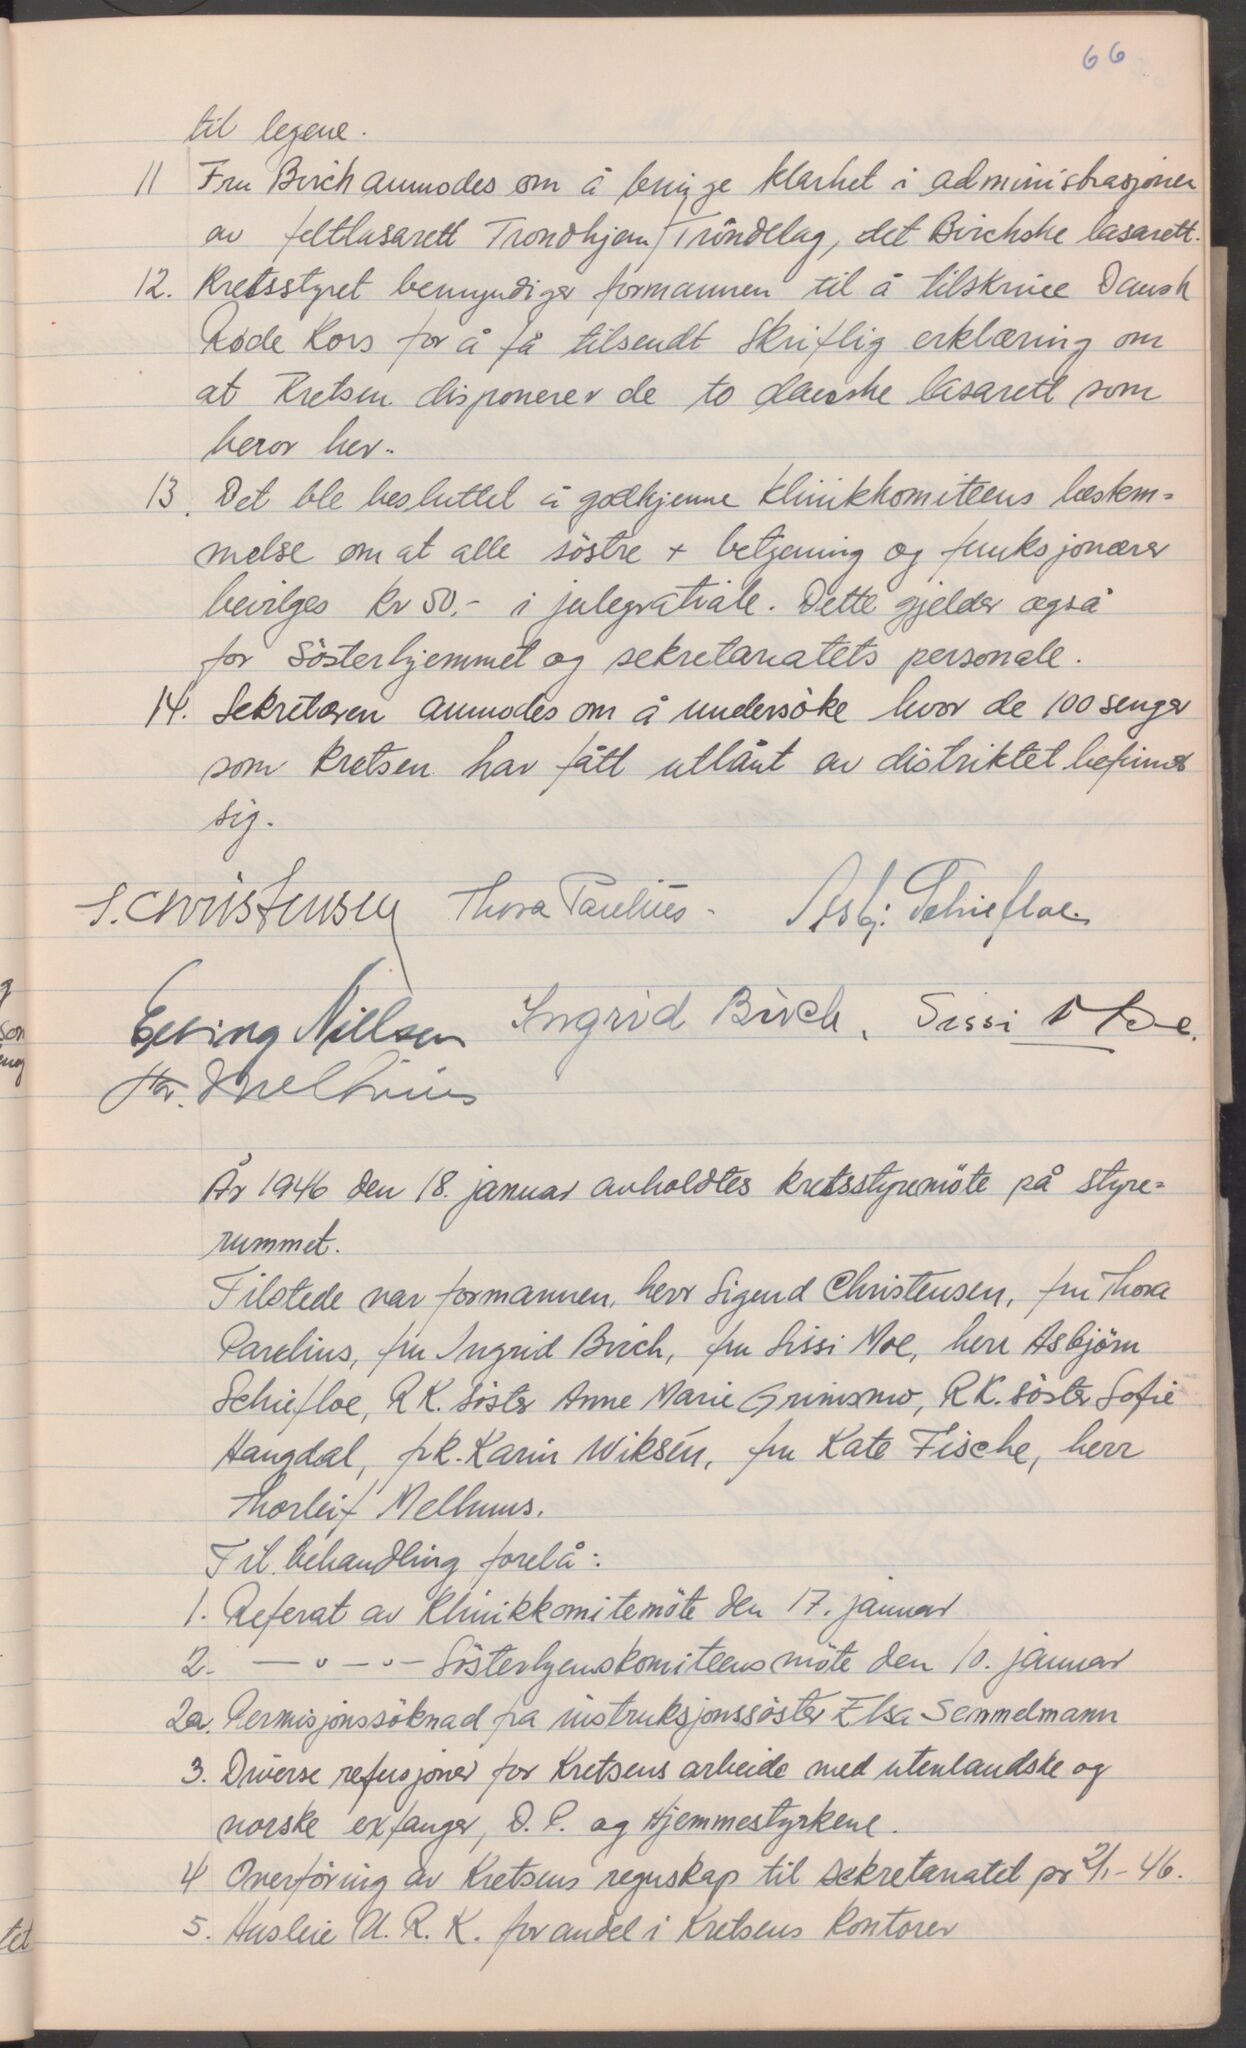 66
til legene.
11 Fru Birch anmodes om å bringe klarhet i administrasjonen
av feltlasarett Trondhjem/Tröndelag, det Birchske lasarett.
12. Kretsstyret bemyndiger formannen til å tilskrive Dansk
Røde Kors for å få tilsendt skriftlig erklæring om
at Kretsen disponerer de to danske lasarett som
beror her.
13. Det ble besluttet å godkjenne Klinikkomiteens bestem=
melse om at alle söstre + betjening og funksjonærer
bevilges kr 50.- i julegratiale. Dette gjelder også
for Sösterhjemmet og sekretariatets personale.
14. Sekretæren anmodes om å undersöke hvor de 100 senger
som kretsen har fått utlånt av distriktet befinner
sig.
S. Christensen Thora Parelius - Asbj. Schiefloe.
Nilsen Ingrid Birch. Sissi Moe.
Melhuus
År 1946 den 18. januar avholdtes kretsstyremöte på styre=
rummet.
Tilstede var formannen, herr Sigurd Christensen, fru Thora
Parelius, fru Ingrid Birch, fru Sissi Moe, herr Asbjörn
Schiefloe, R K. söster Anne Marie Grimsmo, R K. söster Sofie
Haugdal, frk. Karin Wiksén, fru Kate Fische, herr
Thorleif Melhuus.
Til behandling forelå:
1. Referat av Klinikkomitemöte den 17. januar
2. — " — " — Sösterhjemskomiteens möte den 10. januar
2a. Permisjonssöknad fra instruksjonssöster Elsa Semmelmann
3. Diverse refusjoner for Kretsens arbeide med utenlandske og
norske exfanger, D. P. og Hjemmestyrkene.
4 Overföring av Kretsens regnskap til sekretariatet pr 2/1-46.
5. Husleie U. R. K. for andel i Kretsens kontorer